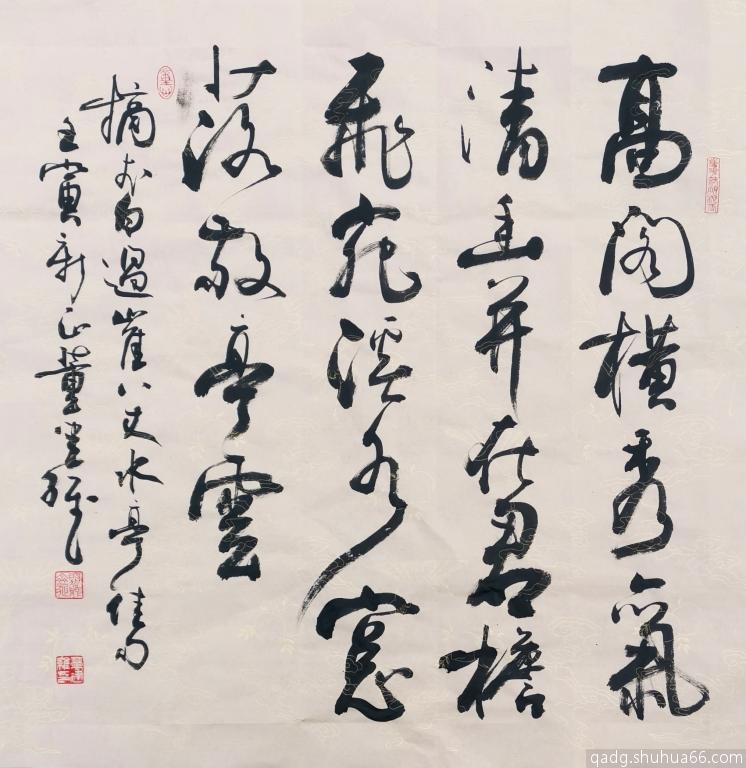 高閣橫秀氣
清幽并在君檐
飛宛溪水窓
落敬亭雲
摘李白過崔八丈水亭佳句
壬寅新正董
qadg.shuhua66.com